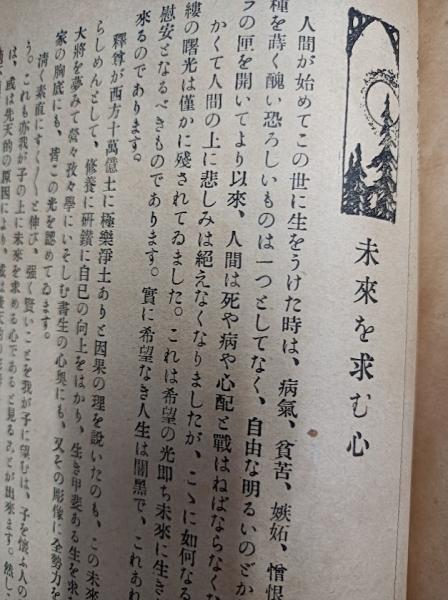 未來を求む心
人間が始めてこの世に生をうけた時は、病氣、貧苦、嫉妬、憎恨
種を蒔く醜い恐ろしいものは一つとしてなく、自由な明るいのどか
の匣を開いてより以來、人間は死や病や心配と戰はねばならなくな
かくて人間の上に悲しみは絕えなくなりましたが、こゝに如何なる
縷の曙光は僅かに殘されてゐました。これは希望の光卽ち未來に生き
慰安となるべきものであります。實に希望なき人生は闇黑で、これあれ
來るのであります。
釋尊が西方十萬億土に極樂淨土ありと因果の理を說いたのも、この未來
らしめんとして、修養に硏鑽に自己の向上をはかり、生き甲斐ある生を求
大將を夢みて營々孜々學にいそしむ書生の心奧にも、又その彫像に全勢力を
家の胸底にも、皆この光を認めてゐます。
淸く素直にすく〳〵と伸び、强く賢いことを我が子に望むは、子を懷ふ人の
う。これも亦我が子の上に未來を求める心であると見ることが出來ます。然し
は、或は先天的の原因により、或は後天的の